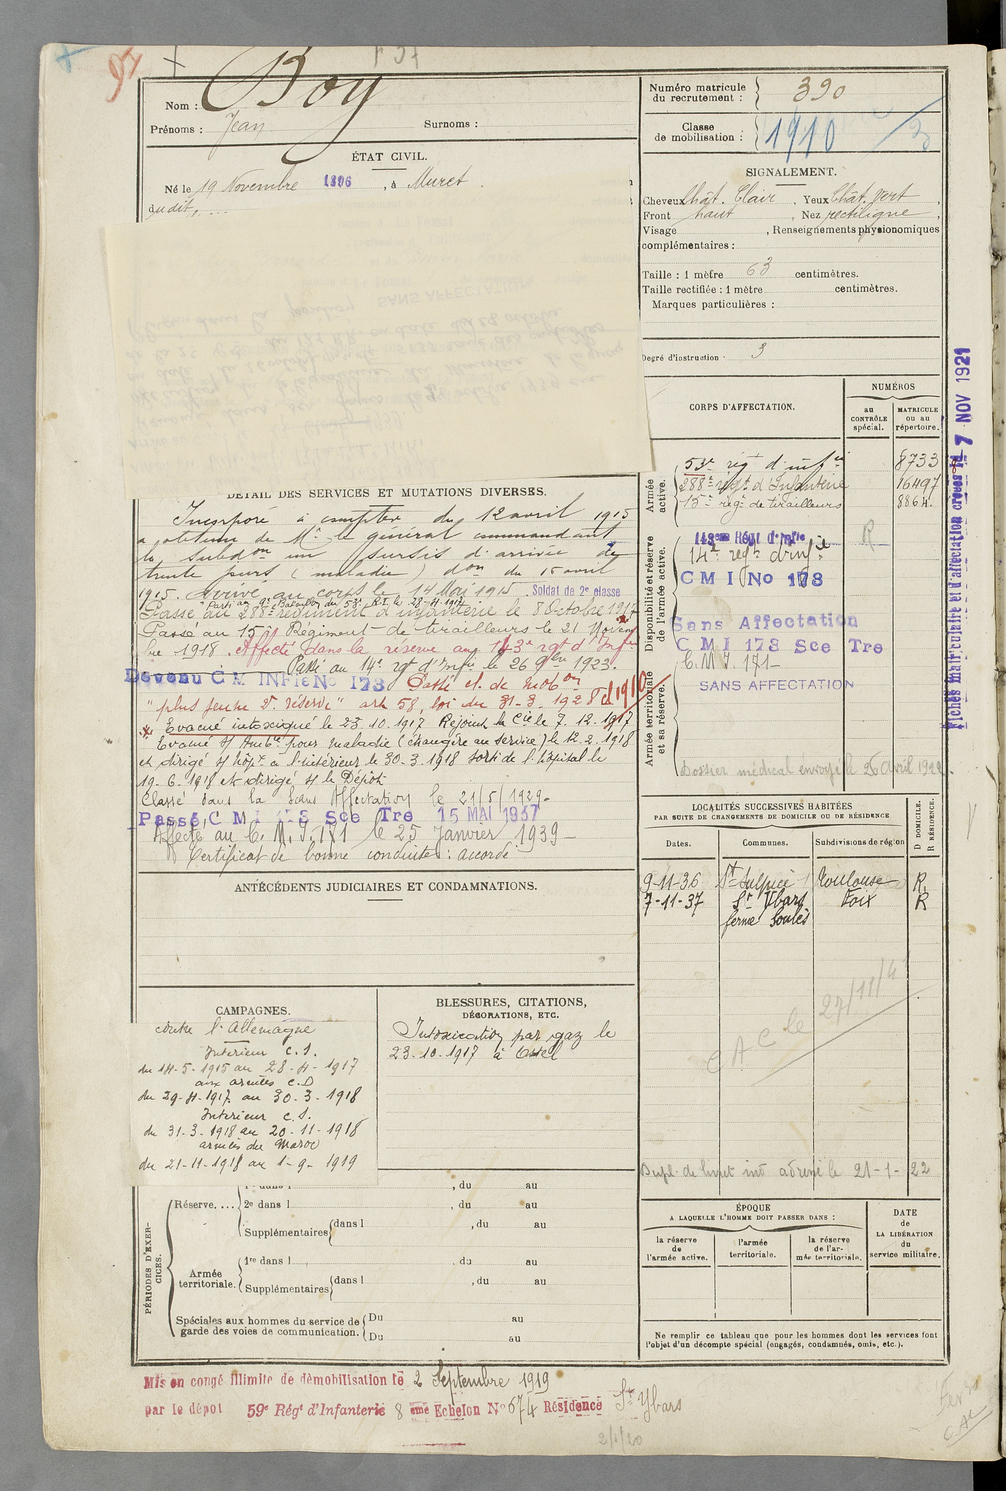 97
Nom : Boy
Prénoms : Jean Surnoms :
ÉTAT CIVIL.
Né le 19 Novembre 1896 , à Muret
dudit, ...
Numéro matricule du recrutement : 390
Classe de mobilisation : 1910
SIGNALEMENT.
Cheveux Chât. Clair , Yeux Chât. vert ,
Front haut , Nez rectiligne ,
Visage , Renseignements physionomiques
complémentaires :
Taille : 1 mètre 63 centimètres.
Taille rectifiée : 1 mètre centimètres.
Marques particulières :
Degré d'instruction : 3
CORPS D'AFFECTATION.
NUMÉROS
au CONTRÔLE spécial.
MATRICULE ou au répertoire.
Armée active.
53e rég. d'infie 8733
288e régt d'Infanterie 16497
15e régt de tirailleurs 8864.
Disponibilité et réserve de l'armée active.
143eme Régt d'Infie R
14e régt d'infie
C M I No 173
Sans Affectation
C M I 173 Sce Tre
C. M. I. 171-
SANS AFFECTATION
Armée territoriale et sa réserve.
Dossier médical envoyé le 26 Avril 1922.
Fiches matriculaire et d'affectation créées le 7 NOV 1921
DÉTAIL DES SERVICES ET MUTATIONS DIVERSES.
Incorporé à compter du 12 avril 1915
a obtenu de Mr le général commandant
la Subdon un sursis d'arrivée de
trente jours (maladie) don du 15 avril
1915. Arrivé au corps le 14 Mai 1915. Soldat de 2e classe
Passé au 288e régiment d'infanterie le 8 Octobre 1917
Passé au 15e Régiment de tirailleurs le 21 Novem
bre 1918. Affecté dans la réserve au 143e rgt d'Infie
Passé au 14e rgt d'Infie le 26 9bre 1923.
Devenu C M INFie No 173 Passé cl. de mobon
"plus jeune 2e réserve" art 58, loi du 31-3. 1928 cl 1910
Evacué intoxiqué le 23.10.1917 Rejoint la Cie le 7.12.1917
Evacué s/ Ambce pour maladie (étrangère au service) le 12.2.1918
et dirigé s/ hôpt à l'intérieur le 30-3.1918 sorti de l'hôpital le
19-6.1918 et dirigé s/ le Dépôt
Classé dans la Sans Affectation le 21/5/1929-
Passé C M I 173 Sce Tre 15 MAI 1937
Affecté au C. M. I. 171 le 25 Janvier 1939 -
Certificat de bonne conduite : accordé
ANTÉCÉDENTS JUDICIAIRES ET CONDAMNATIONS.
LOCALITÉS SUCCESSIVES HABITÉES
PAR SUITE DE CHANGEMENTS DE DOMICILE OU DE RÉSIDENCE
Dates. Communes. Subdivisions de région D DOMICILE. R RÉSIDENCE.
9-11-36 St Sulpice Toulouse R.
7-11-37 St Ybars Foix R
ferme Soulès
C A C le 27/11/4
Dupl. de livret indl adressé le 21-1-22
CAMPAGNES.
contre l'Allemagne
Intérieur C. S.
du 14-5-1915 au 28-4-1917
aux armées C. D
du 29-4-1917 au 30-3-1918
Intérieur C. S.
du 31-3-1918 au 20-11-1918
armées du Maroc
du 21-11-1918 au 1-9-1919
BLESSURES, CITATIONS,
DÉCORATIONS, ETC.
Intoxication par gaz le
23-10-1917 à Ostel
PÉRIODES D'EXERCICES.
Réserve....
1re dans l , du au
2e dans l , du au
Supplémentaires dans l , du au
Armée territoriale.
1re dans l , du au
Supplémentaires dans l , du au
Spéciales aux hommes du service de garde des voies de communication.
Du au
Du au
ÉPOQUE
A LAQUELLE L'HOMME DOIT PASSER DANS :
la réserve de l'armée active.
l'armée territoriale.
la réserve de l'armée territoriale.
DATE de LA LIBÉRATION du service militaire.
Ne remplir ce tableau que pour les hommes dont les services font
l'objet d'un décompte spécial (engagés, condamnés, omis, etc.).
Mis en congé illimité de démobilisation le 2 Septembre 1919
par le dépot 59e Régt d'Infanterie 8 eme Echelon No 674 Résidence St Ybars
2/1/20